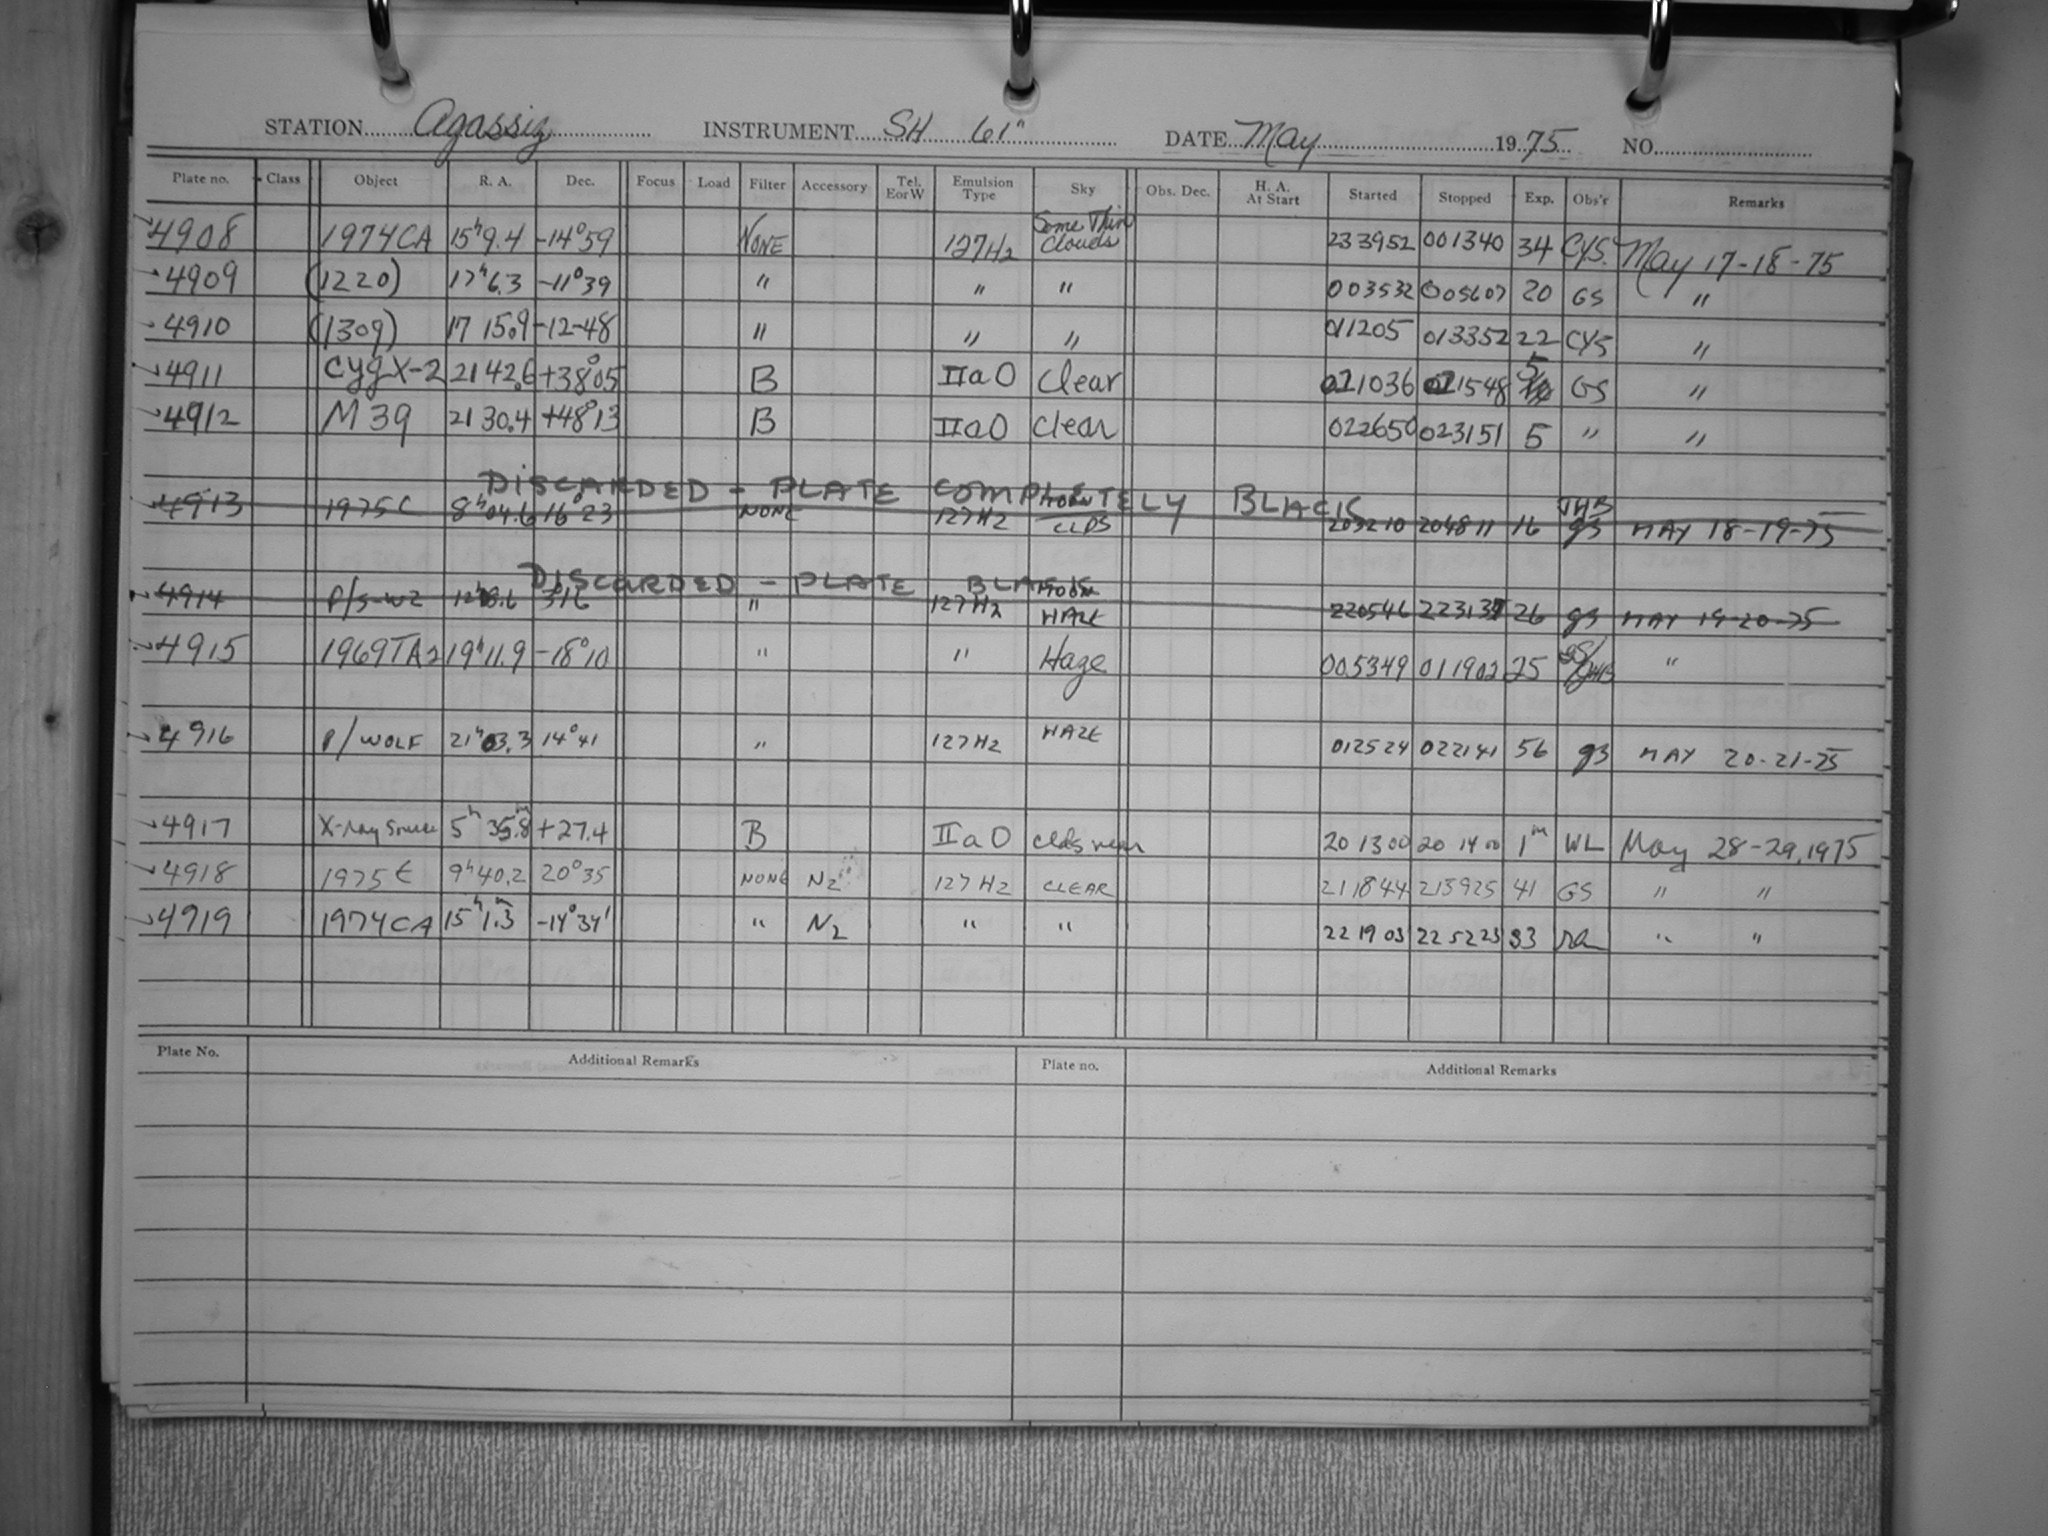 STATION Agassiz INSTRUMENT SH 61" DATE May 1975 NO.
Plate no. Class Object R. A. Dec. Focus Load Filter Accessory Tel. E or W Emulsion Type Sky Obs. Dec. H. A. At Start Started Stopped Exp. Obs'r Remarks
4908 1974CA 15h9.4 -14°59 NONE 127H2 Some Thin Clouds 233952 001340 34 CYS. May 17-18-75
4909 (1220) 17h6.3 -11°39 " " " 003532 005607 20 GS "
4910 (1309) 17 15.9 -12-48 " " " 011205 013352 22 CYS "
4911 Cyg X-2 21 42.6 +38°05 B IIaO Clear 021036 021548 5 GS "
4912 M39 21 30.4 +48°13 B IIaO Clear 022650 023151 5 " "
DISCARDED - PLATE COMPLETELY BLACK
4913 1975C 8h04.6 16°23 NONE 127H2 MOON CLDS 203210 204811 16 JHB gs MAY 18-19-75
DISCARDED - PLATE BLACK
4914 P/S-W2 316 " 127H2 HAZE 220546 223137 26 gs MAY 19-20-75
4915 1969TA2 19h11.9 -18°10 " " Haze 005349 011902 25 "
4916 P/WOLF 21h03.3 14°41 " 127H2 HAZE 012524 022141 56 gs MAY 20-21-75
4917 X-ray Source 5h 35.8m +27.4 B IIaO clds near 20 13 00 20 14 00 1m WL May 28-29, 1975
4918 1975E 9h40.2 20°35 NONE N2 127H2 CLEAR 211844 215925 41 GS " "
4919 1974CA 15h1.3m -14°34' " N2 " " 22 19 03 22 52 23 33 " "
Plate No. Additional Remarks Plate no. Additional Remarks